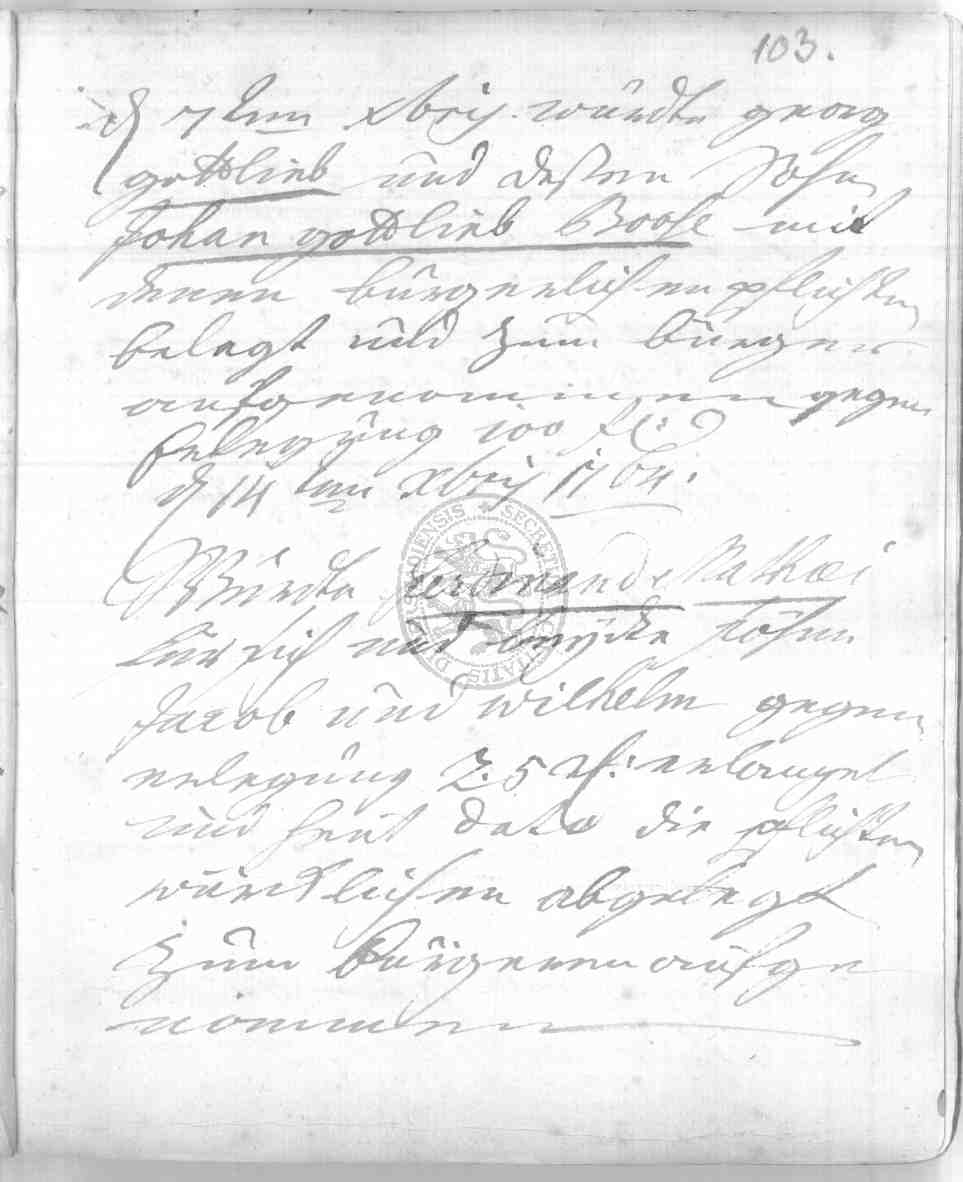 103.
d 7ten xbris wurdte georg
gottlieb und dessen Sohn
Johan gottlieb Boose mit
denen bürgerlichen pflichten
belegt und zum bürger
aufgenommen gegen
erlegung 100 fl:
d 14ten xbris 1764.
Wurdte Ferdinand Mathæi
für sich und beyde söhne
Jacob und wilhelm gegen
erlegung 25 rh: erlanget
und heut dato die pflichten
würcklichen abgelegt
zum bürgeren aufge
nommen